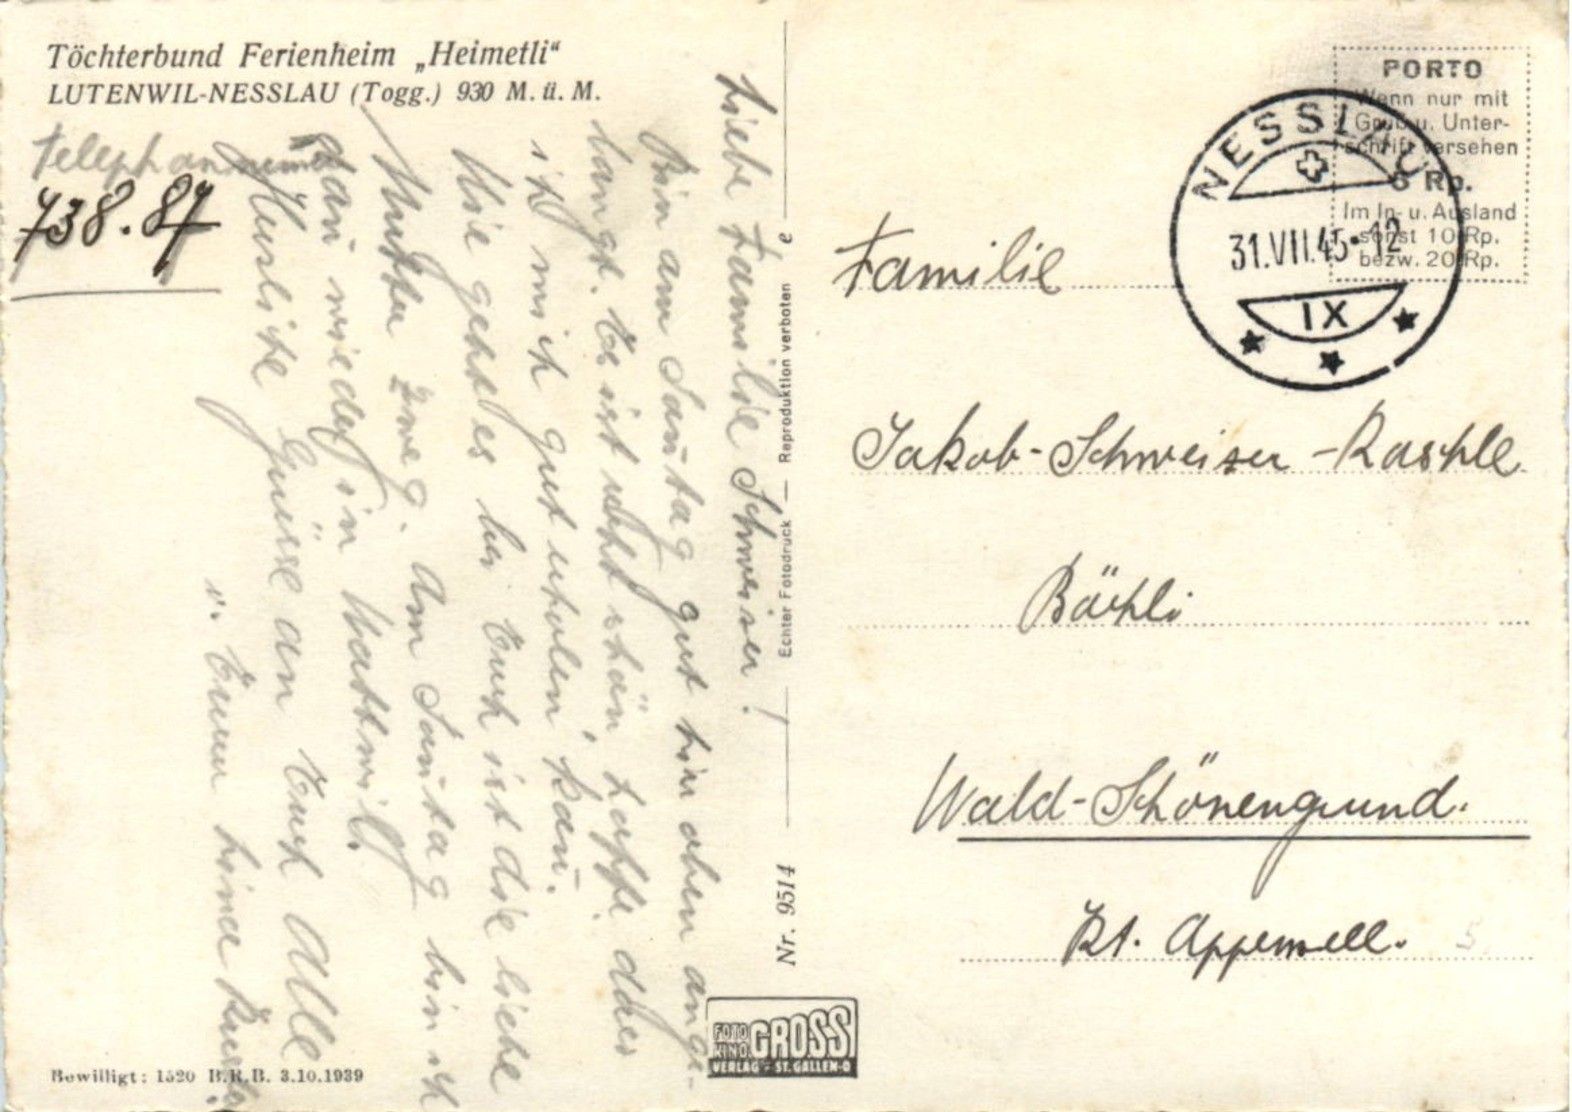 Töchterbund Ferienheim „Heimetli“
LUTENWIL-NESSLAU (Togg.) 930 M. ü. M.
738.87
Liebe Familie Schweiser!
Bin am Sontag gut hir oben ange-
langt. Es ist sehr schön hoffe das
ich mich gut erholen kan.
Wie geht es bei Euch ist die liebe
Mutter zweg. Am Sontag bin ich
dan wieder in
Herzliche Grüsse an Euch Alle
Echter Fotodruck — Reproduktion verboten e
Nr. 9514
FOTO KINO GROSS
VERLAG - ST. GALLEN-O
Bewilligt: 1520 B.R.B. 3.10.1939
PORTO
Wenn nur mit
Gruß u. Unter-
schrift versehen
5 Rp.
Im In- u. Ausland
sonst 10 Rp.
bezw. 20 Rp.
NESSLAU
31.VII.45-12
IX
Familie
Jakob-Schweiser-Raschle
Bächli
Wald-Schönengrund.
Kt. Appenzell.